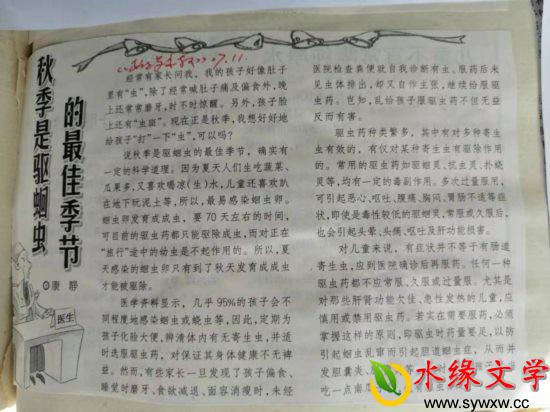 秋季是驱蛔虫
的最佳季节
康 静
医生
经常有家长问我，我的孩子好像肚子
里有“虫”，除了经常喊肚子痛及偏食外，晚
上还常常磨牙，时不时惊醒。另外，孩子脸
上还有“虫斑”。现在正是秋季，我想好好地
给孩子“打”一下“虫”，可以吗？
说秋季是驱蛔虫的最佳季节，确实有
一定的科学道理。因为夏天人们生吃蔬菜、
瓜果多，又喜欢喝凉（生）水，儿童还喜欢趴
在地下玩泥土等，所以，最易感染虫卵。
蛔虫卵发育成成虫，要70天左右的时间，
可目前的驱虫药都只能驱除成虫，而对正在
“旅行”途中的幼虫是不起作用的。所以，夏
天感染的蛔虫卵只有到了秋天发育成成虫
才能被驱除。
医学资料显示，几乎95%的孩子会不
同程度地感染蛔虫或蛲虫等，因此，定期为
孩子化验大便，辨清体内有无寄生虫，并适
时选服驱虫药，对保证其身体健康不无裨
益。然而，有些家长一旦发现了孩子偏食、
睡觉时磨牙、食欲减退、面容消瘦时，未经
医院检查粪便就自我诊断有虫。服药后未
见虫体排出，却又自作主张，继续给服驱
虫药。也知，乱给孩子服驱虫药不但无益
反而有害。
驱虫药种类繁多，其中有对多种寄生
虫有效的，有仅对某种寄生虫有驱除作用
的。常用的驱虫药如驱蛔灵、抗虫灵、扑蛲
灵等，均有一定的毒副作用。多次过量服用，
可引起恶心、呕吐、腹痛、胸闷、胃肠不适等症
状，即使是毒性较低的驱蛔灵，常服或久服后，
也会引起头晕、头痛、呕吐及肝功能损害。
对儿童来说，有症状并不等于有肠道
寄生虫，应到医院确诊后再服药。任何一种
驱虫药都不应常服、久服或过量服。尤其是
对那些肝肾功能欠佳、急性发热的儿童，应
慎用或禁用驱虫药。若实在需要服药，必须
掌握这样的原则，即驱虫时药量要足，以防
引起蛔虫乱窜而引起胆道蛔虫症，从而并
发胆囊炎、
吃一点南瓜
水缘文学
www.sywxw.cc